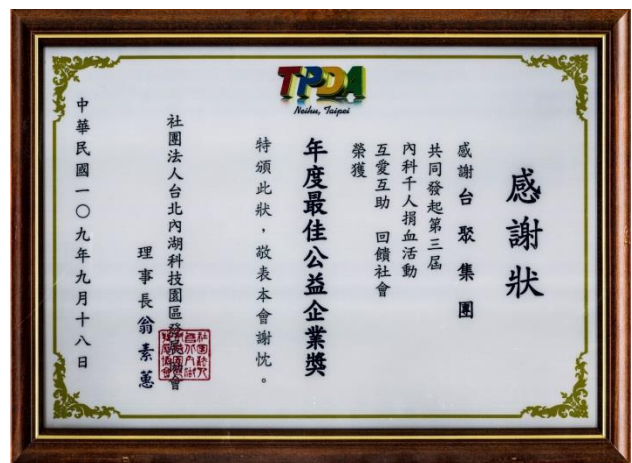 TPDA
Neihu, Taipei
感謝狀
感謝 台聚集團
共同發起第三屆
內科千人捐血活動
互愛互助 回饋社會
榮獲
年度最佳公益企業獎
特頒此狀，敬表本會謝忱。
社團法人台北內湖科技園區發展協會
理事長 翁素蕙
中華民國一〇九年九月十八日